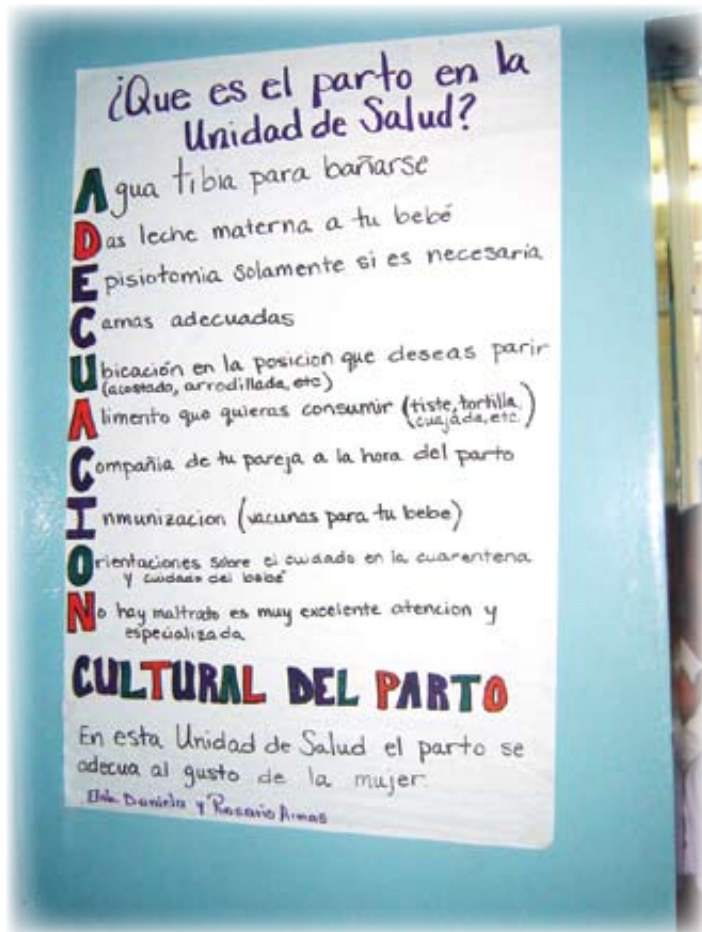 ¿Que es el parto en la
Unidad de Salud?
Agua tibia para bañarse
Das leche materna a tu bebé
Episiotomia solamente si es necesaria
Camas adecuadas
Ubicación en la posicion que deseas parir
(acostado, arrodillada, etc)
Alimento que quieras consumir (tiste, tortilla,
cuajada, etc.)
Compañia de tu pareja a la hora del parto
Inmunizacion (vacunas para tu bebe)
Orientaciones sobre el cuidado en la cuarentena
y cuidado del bebé
No hay maltrato es muy excelente atencion y
especializada
CULTURAL DEL PARTO
En esta Unidad de Salud el parto se
adecua al gusto de la mujer.
Daniela y Rosario